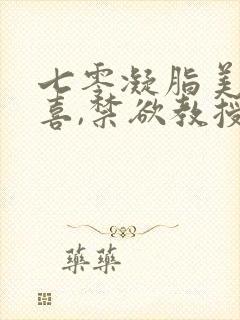 七零凝脂美
喜,禁欲教授
藥藥